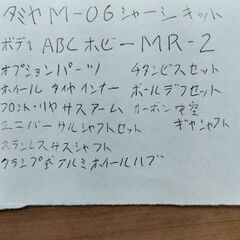 タミヤM-06シャーシキット
ボディABCホビーMR-2
オプションパーツ
ホイールタイヤインナー
フロントリヤサスアーム
ユニバーサルシャフトセット
ステンレスサスシャフト
クランプ式アルミホイールハブ
チタンビスセット
ボールデフセット
カーボン中空
ギヤシャフト